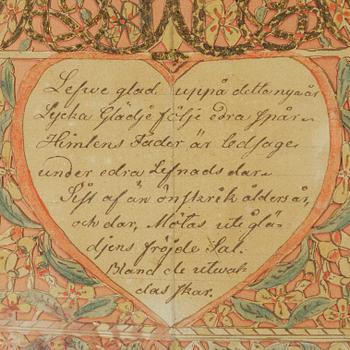 Lefwe glad uppå detta nya år
Lycka Glädje följe edra spår
Himlens Fader är ledsage
under edra Lefnads dar
Sist af än önskrik ålders år,
och dar, Mötas uti glä-
djens fröjde Sal.
Bland de utwal
das skar.